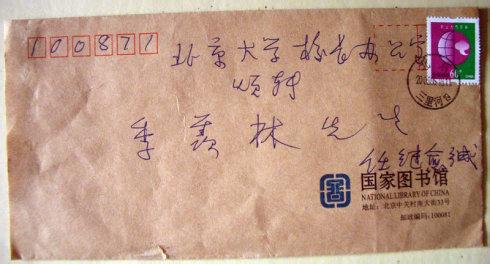 100871
北京大学校长办公室
颂转
季羡林先生
任继愈缄
国家图书馆
NATIONAL LIBRARY OF CHINA
地址：北京中关村南大街33号
邮政编码：100081
60分
三里河